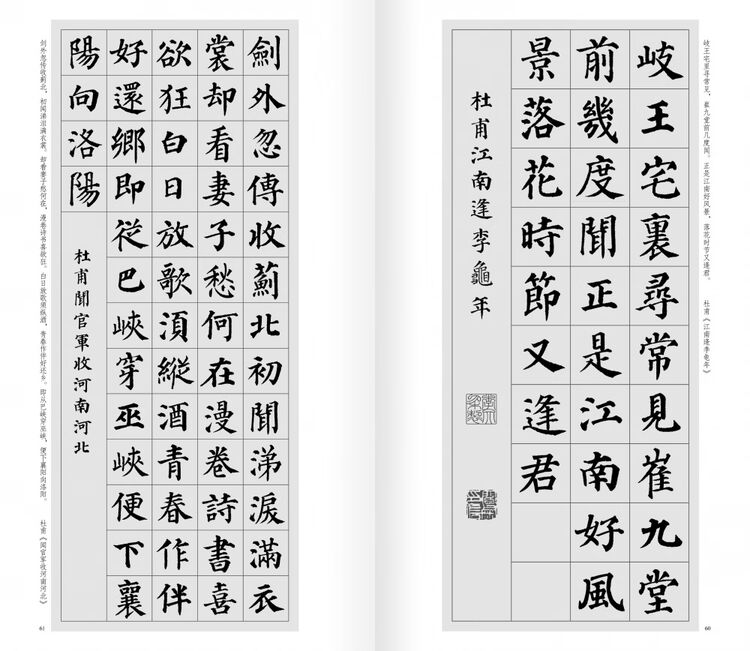 岐王宅里寻常见，崔九堂前几度闻。正是江南好风景，落花时节又逢君。 杜甫《江南逢李龟年》
岐王宅裏尋常見崔九堂
前幾度聞正是江南好風
景落花時節又逢君
杜甫江南逢李龜年
60
劍外忽傳收薊北初聞涕淚滿衣
裳却看妻子愁何在漫卷詩書喜
欲狂白日放歌湏縱酒青春作伴
好還鄉即従巴峽穿巫峽便下襄
陽向洛陽
杜甫聞官軍收河南河北
剑外忽传收蓟北，初闻涕泪满衣裳。却看妻子愁何在，漫卷诗书喜欲狂。白日放歌须纵酒，青春作伴好还乡。即从巴峡穿巫峡，便下襄阳向洛阳。 杜甫《闻官军收河南河北》
61